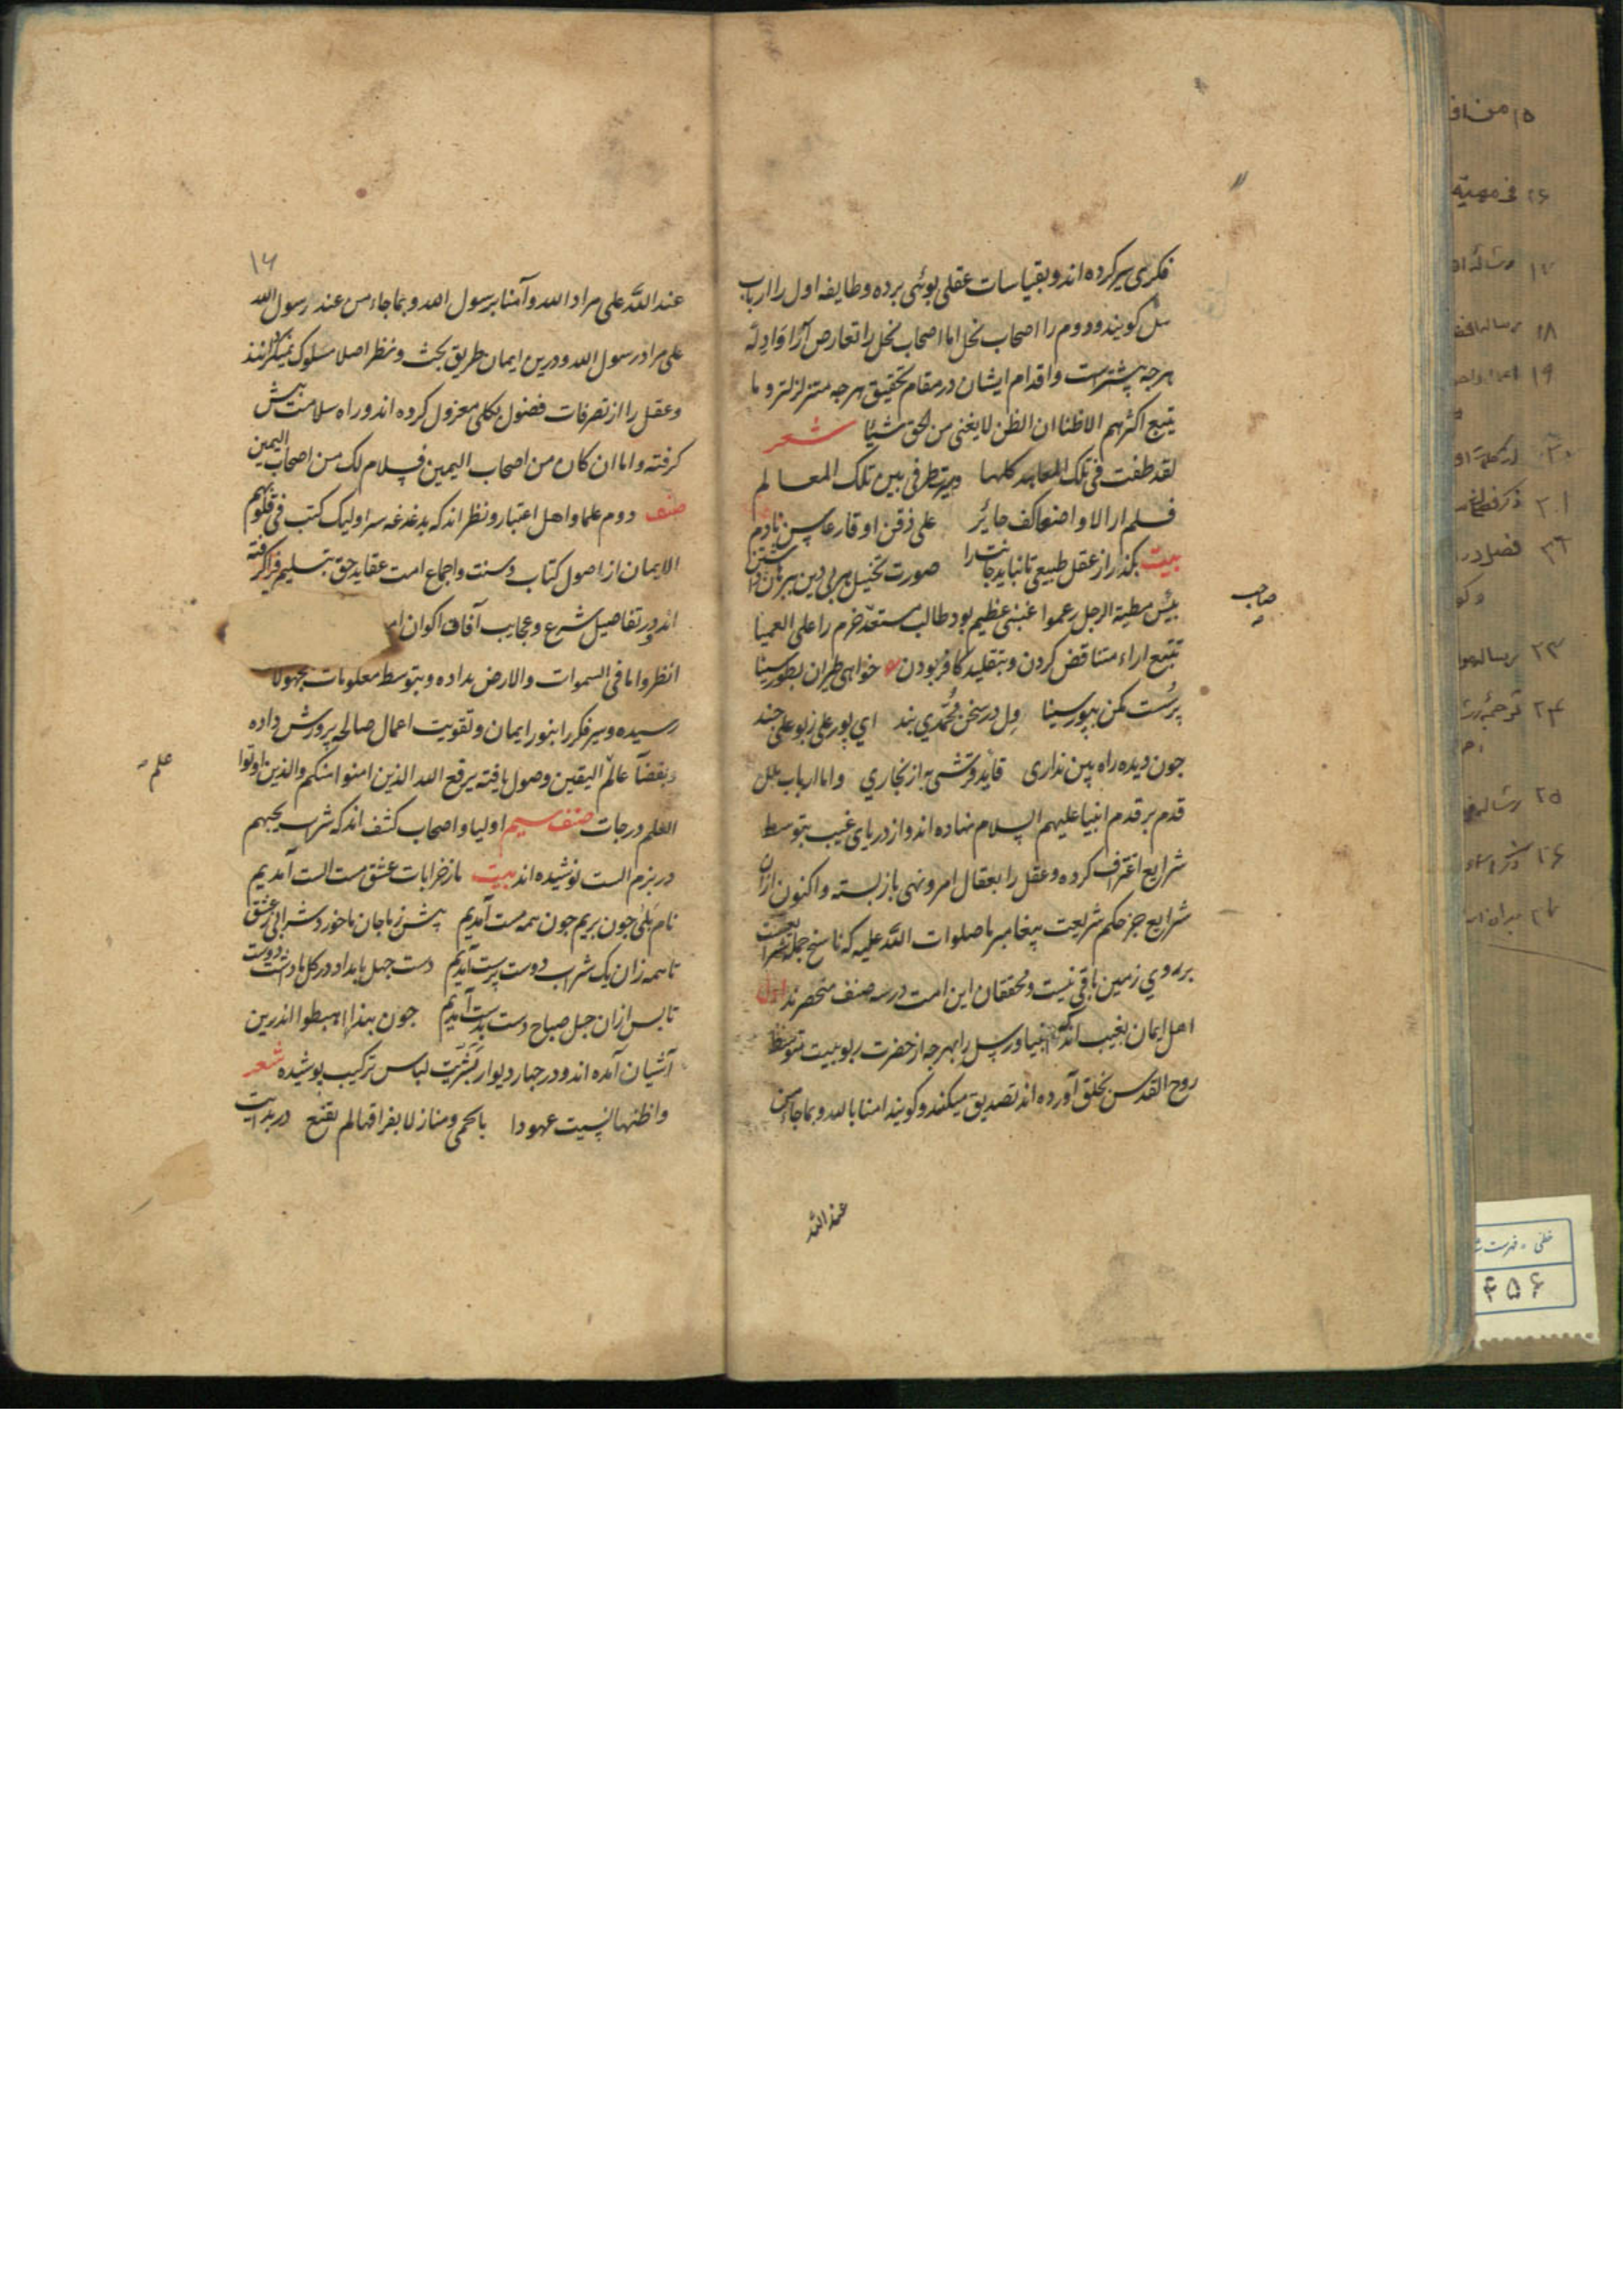 فکری سیر کرده اند و بقیاسات عقلی بوئی برده و طایفه اول را ارباب
ملل کویند و دوم را اصحاب نحل اما اصحاب نحل را تعارض آرا و ادله
هرچه بیشترست و اقدام ایشان در مقام تحقیق هرجه متزلزلتر و ما
یتبع اکثرهم الا ظنا ان الظن لا یغنی من الحق شیئا شعر
لقد طفت فی تلک المعاهد کلها وسیرت طرفی بین تلک المعالم
فلم ار الا واضعا کف حائر علی ذقن او قارعا سن نادم
بیت بکذر از عقل طبیعی تا نیاید جانت را صورت تخییل هر بی دین
بئس مطیة الرجل زعموا غبنی عظیم بود طالب مستعد خرم را علی العمیا
تتبع اراء متناقض کردن و بتقلید کافر بودن خواهی طیران بطور سینا
پرست مکن بپور سینا دل در سخن محمدی بند ای پور علی ز بو علی چند
جون دیده راه بین نداری قاید قرشی به از بخاری و اما ارباب ملل
قدم بر قدم انبیا علیهم السلام نهاده اند و از دریای غیب بتوسط
شرایع اغتراف کرده و عقل را بعقال امر و نهی باز بسته و اکنون ازان
شرایع جز حکم شریعت پیغامبر ما صلوات الله علیه که ناسخ جمله شرایعست
بر روی زمین باقی نیست و محققان این امت در سه صنف منحصرند اول
اهل ایمان بغیب اند که انبیا و رسل را بهرجه از حضرت ربوبیت بتوسط
روح القدس بخلق آورده اند تصدیق میکنند و کویند امنا بالله و بما جاء من
عند الله
صاحب
۱۶
عند الله علی مراد الله و آمنا برسول الله و بما جاء من عند رسول الله
علی مراد رسول الله و درین ایمان طریق بحث و نظر اصلا مسلوک نمیکردانند
و عقل را از تصرفات فضول بکلی معزول کرده اند و راه سلامت پیش
کرفته و اما ان کان من اصحاب الیمین فسلام لک من اصحاب الیمین
صنف دوم علما و اهل اعتبار و نظر اند که بدغدغه سر اولیک کتب فی قلوبهم
الایمان از اصول کتاب و سنت و اجماع امت عقاید حق بتسلیم فرا کرفته
اند و در تفاصیل شرع و عجایب آفاق اکوان
انظروا ما فی السموات والارض بداده و بتوسط معلومات بمجهولات
رسیده و سیر فکر را بنور ایمان و تقویت اعمال صالحه پرورش داده
و بفضآ عالم الیقین وصول یافته یرفع الله الذین امنوا منکم والذین اوتوا
العلم درجات صنف سیم اولیا و اصحاب کشف اند که شراب یحبهم
در بزم الست نوشیده اند بیت ما ز خرابات عشق مست الست آمدیم
نام بلی جون بریم جون همه مست آمدیم پیش ز ما جان ما خورد شرابی ز عشق
تا همه زان یک شراب دوست پرست آمدیم دست جهل بامداد در کل ما داشت دوست
تا بس ازان جهل صباح دست بدست آمدیم جون بندا اهبطوا الذرین
آشیان آمده اند و در جهار دیوار بشریت لباس ترکیب پوشیده شعر
واظنها نسیت عهودا بالحمی ومنازلا بفراقها لم تقنع در بدایت
علم
۱۸
۱۹
۲۱
۲۳
۲۴
۲۵
۲۶
خطی - فهرست
۴۵۶